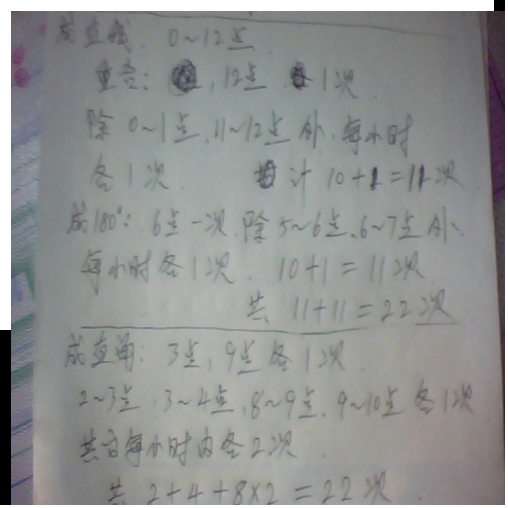 成直线. 0~12点
重合: 12点 1次
除 0~1点、11~12点 外、每小时
各1次. 共计 10+1=11次
成180°: 6点一次. 除5~6点、6~7点外、
每小时各1次. 10+1=11次
共 11+11=22次
成直角: 3点, 9点各1次.
2~3点. 3~4点, 8~9点, 9~10点 各1次
其它每小时内各2次.
共 2+4+8×2=22次.